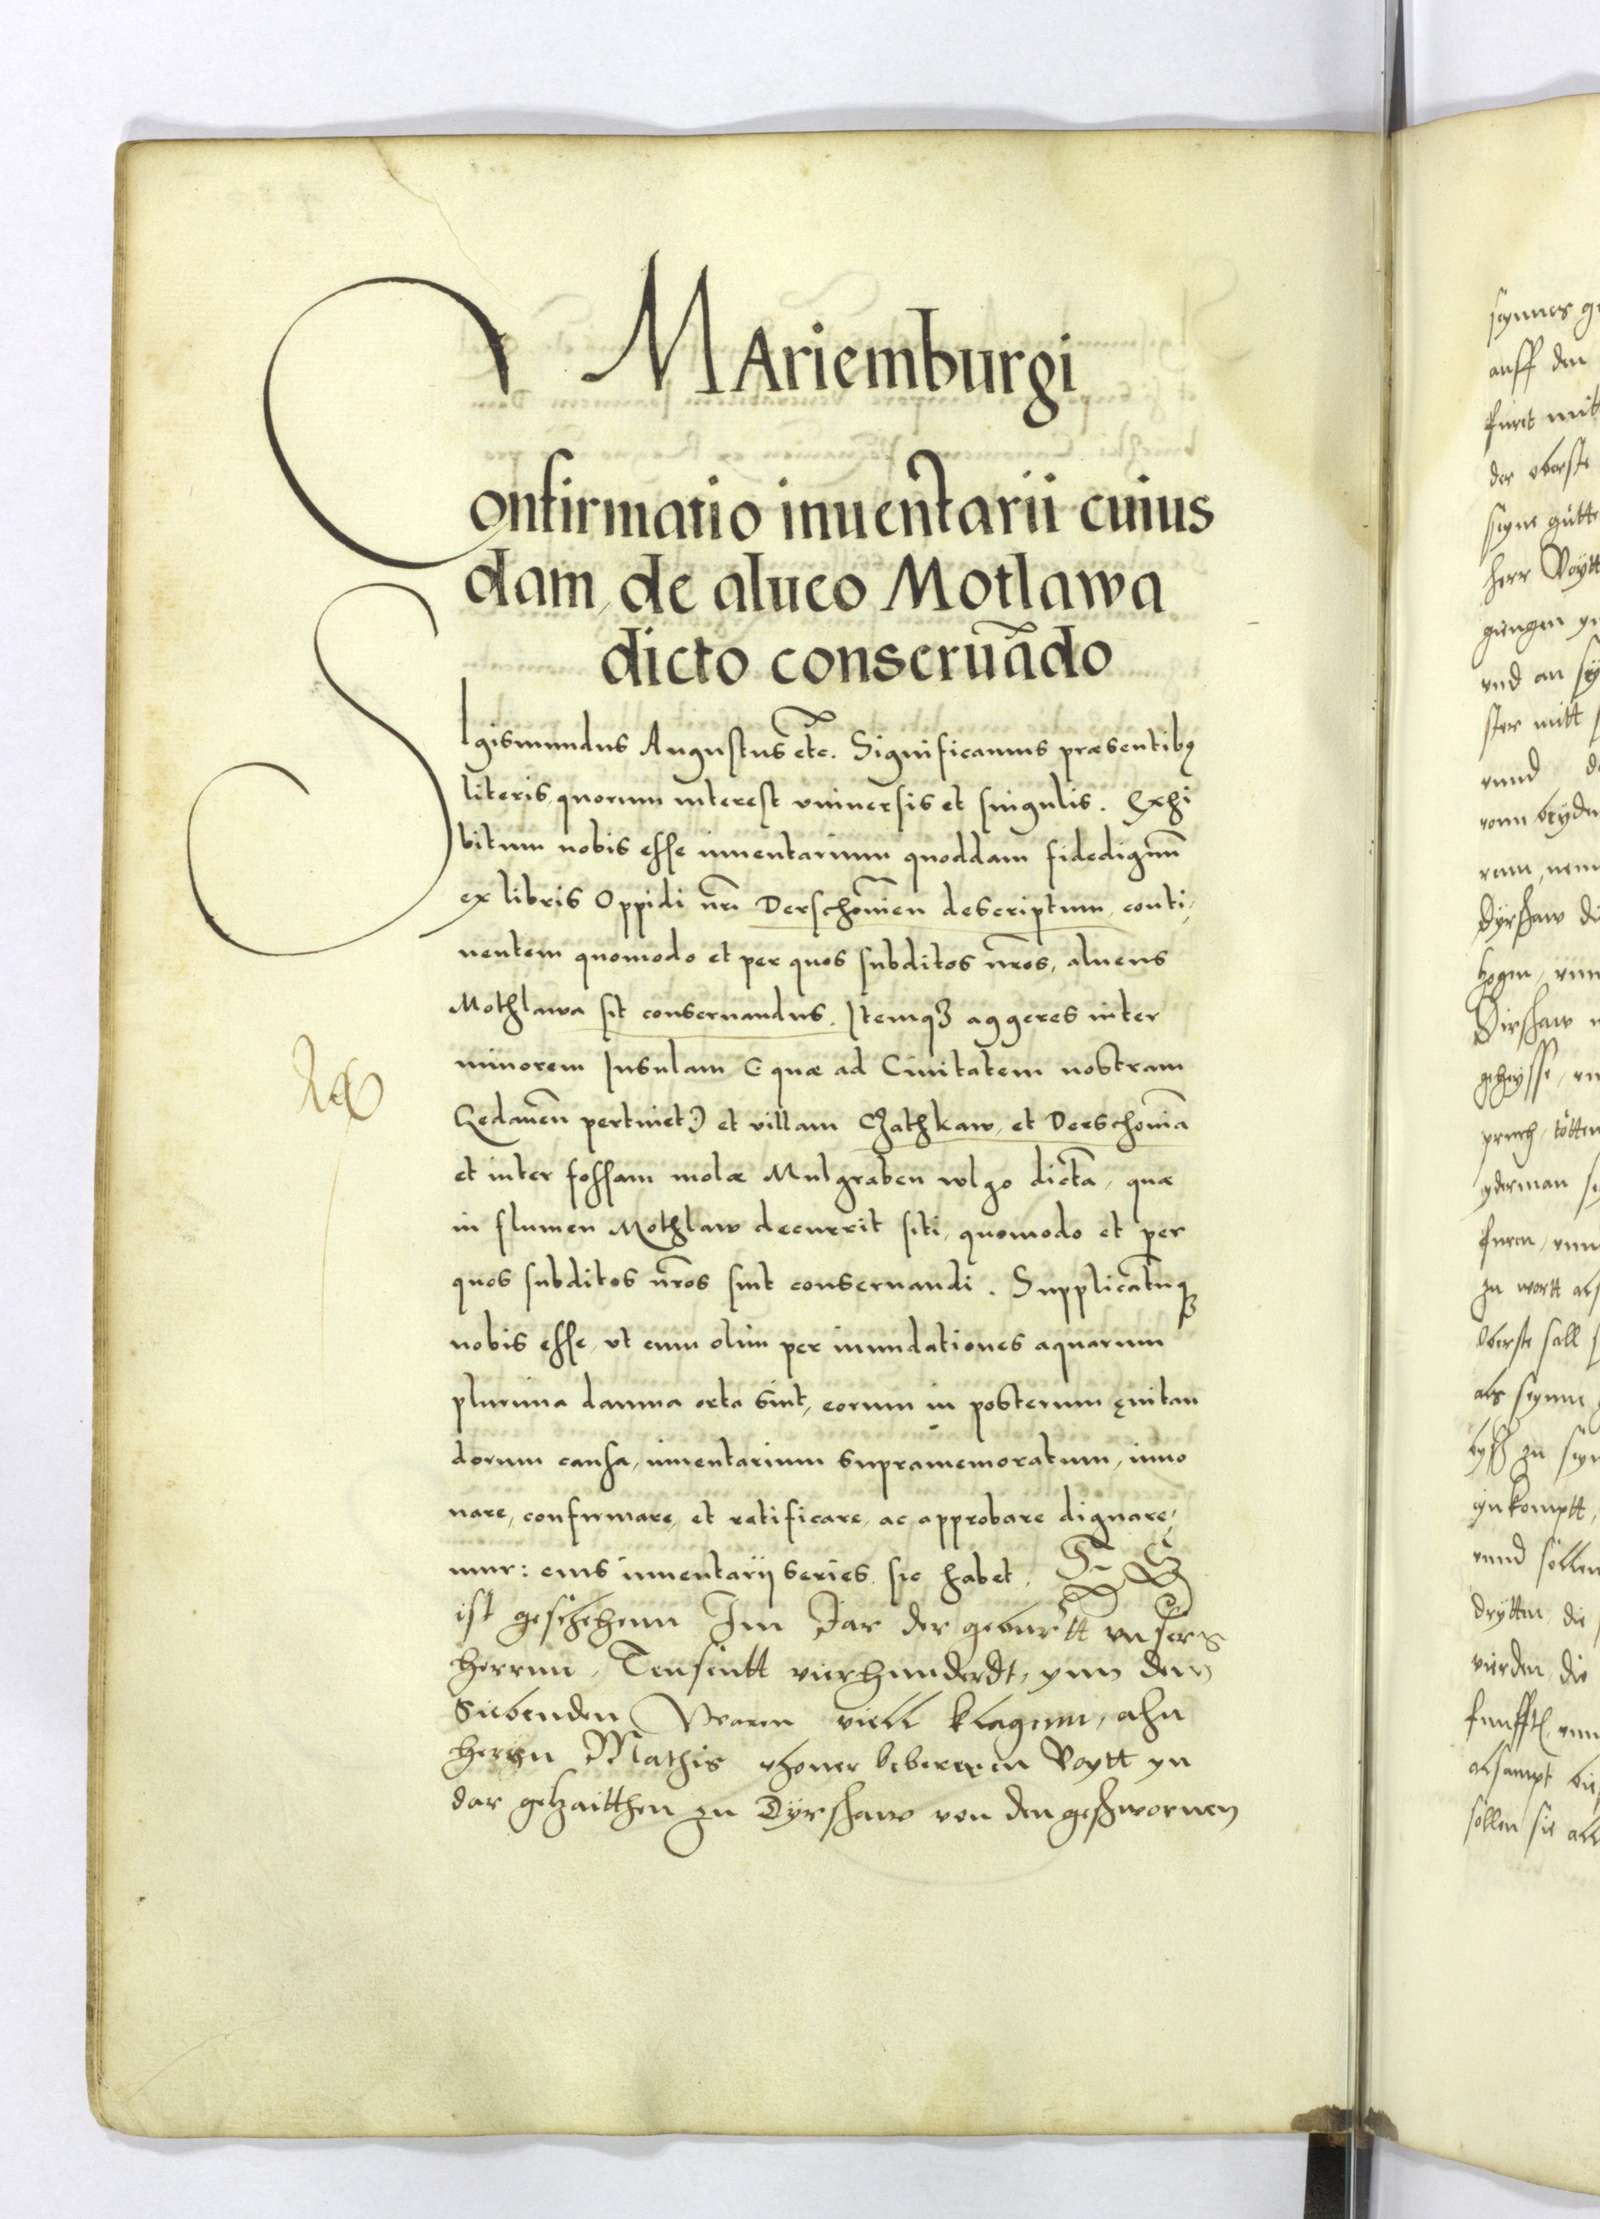 MAriemburgi
Confirmatio inuentarii cuius
dam, de alueo Motlawa
dicto conseruãdo
SIgismundus Augustus etc. Significamus præsentibus
literis, quorum interest vniuersis et singulis. Exhi
bitum nobis esse inuentarium quoddam fidedignũ
ex libris Oppidi nr̃i Derschouieñ descriptum, conti,
nentem quomodo et per quos subditos nr̃os, alueus
Mothlawa sit conseruandus. Itemqꝫ aggeres inter
minorem Insulam (quæ ad Ciuitatem nostram
Gedaneñ pertinet) et villam Czathkaw, et Derschouiã
et inter fossam molæ Mulgraben wlgo dictã, quæ
in flumen Mothlaw decurrit siti, quomodo et per
quos subditos nr̃os sint conseruandi. Supplicatũqꝫ
nobis esse, vt cum olim per inundationes aquarum
plurima damna orta sint, eorum in posterum euitan
dorum causa, inuentarium supramemoratum, inno
uare, confirmare, et ratificare, ac approbare dignare,
mur: cuius inuentarij series sic habet. Es
ist geschehenn Im Jar der geburtt vnsers
herrnn, Tausentt vierhunderdt, ynn dem
siebenden Waren viell klagenn, ahn
herrn Mathis Voytt yn
dar getzaitthen zu Dyrschaw von den geschwornen
seynnes
auff den
furet mitt
der oberste
seyne gutte
herr Voytt
gungen
vnd an
ster mitt
vnnd
vonn beyden
Dyrschaw
Dirschaw
yderman
furen, vnn
zu wortt als
Oberste sall
als seynne
ynkomptt,
vnnd sollen
drytten, die
vierden, die
sollen sie all